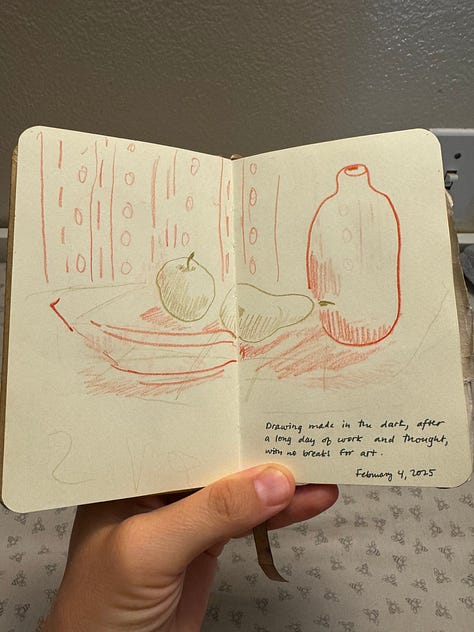 Drawing made in the dark, after
a long day of work and thought,
with no breaks for art.
February 4, 2025